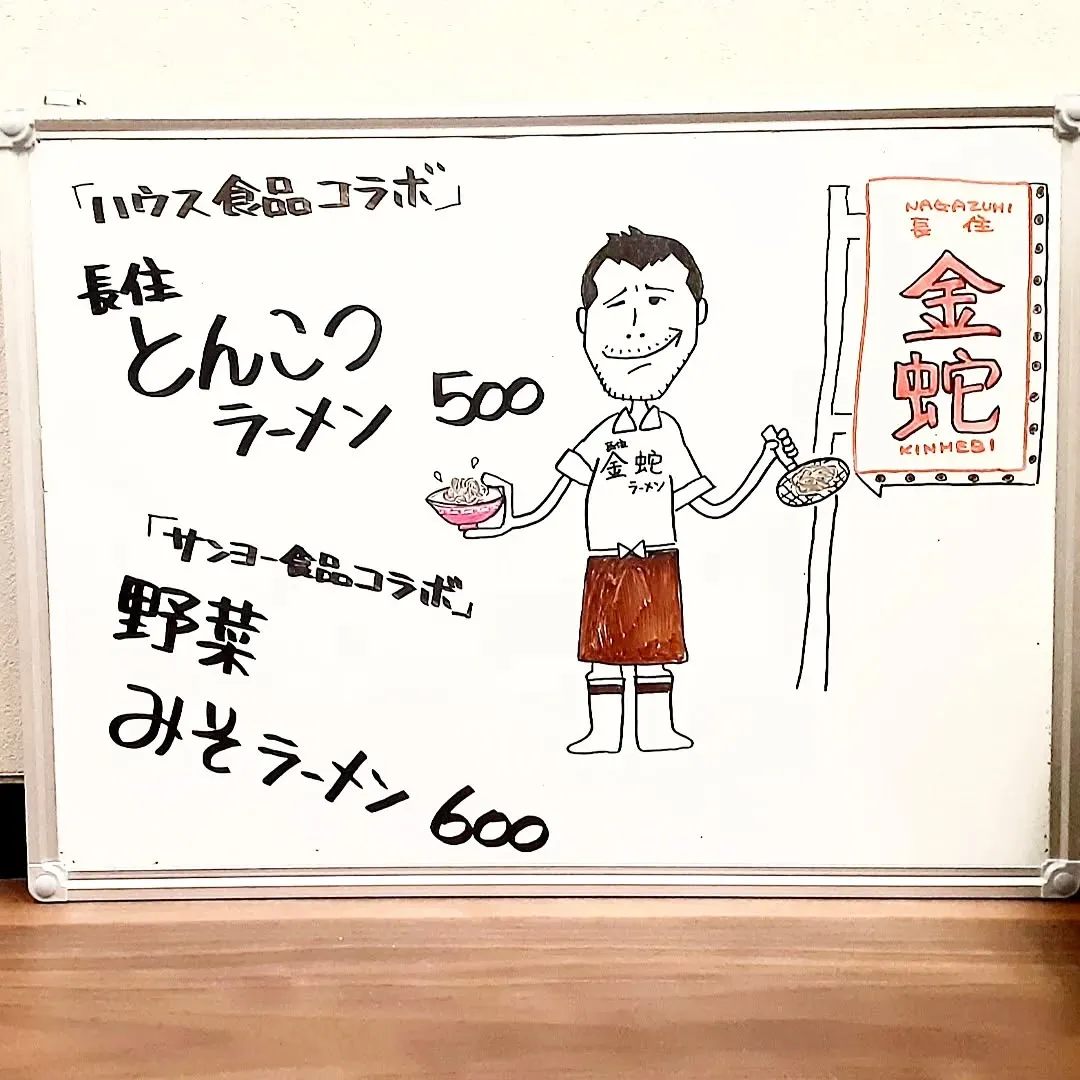 「ハウス食品コラボ」
長住
とんこつ
ラーメン 500
「サンヨー食品コラボ」
野菜
みそラーメン 600
長住
金蛇
ラーメン
NAGAZUMI
長住
金
蛇
KINHEBI